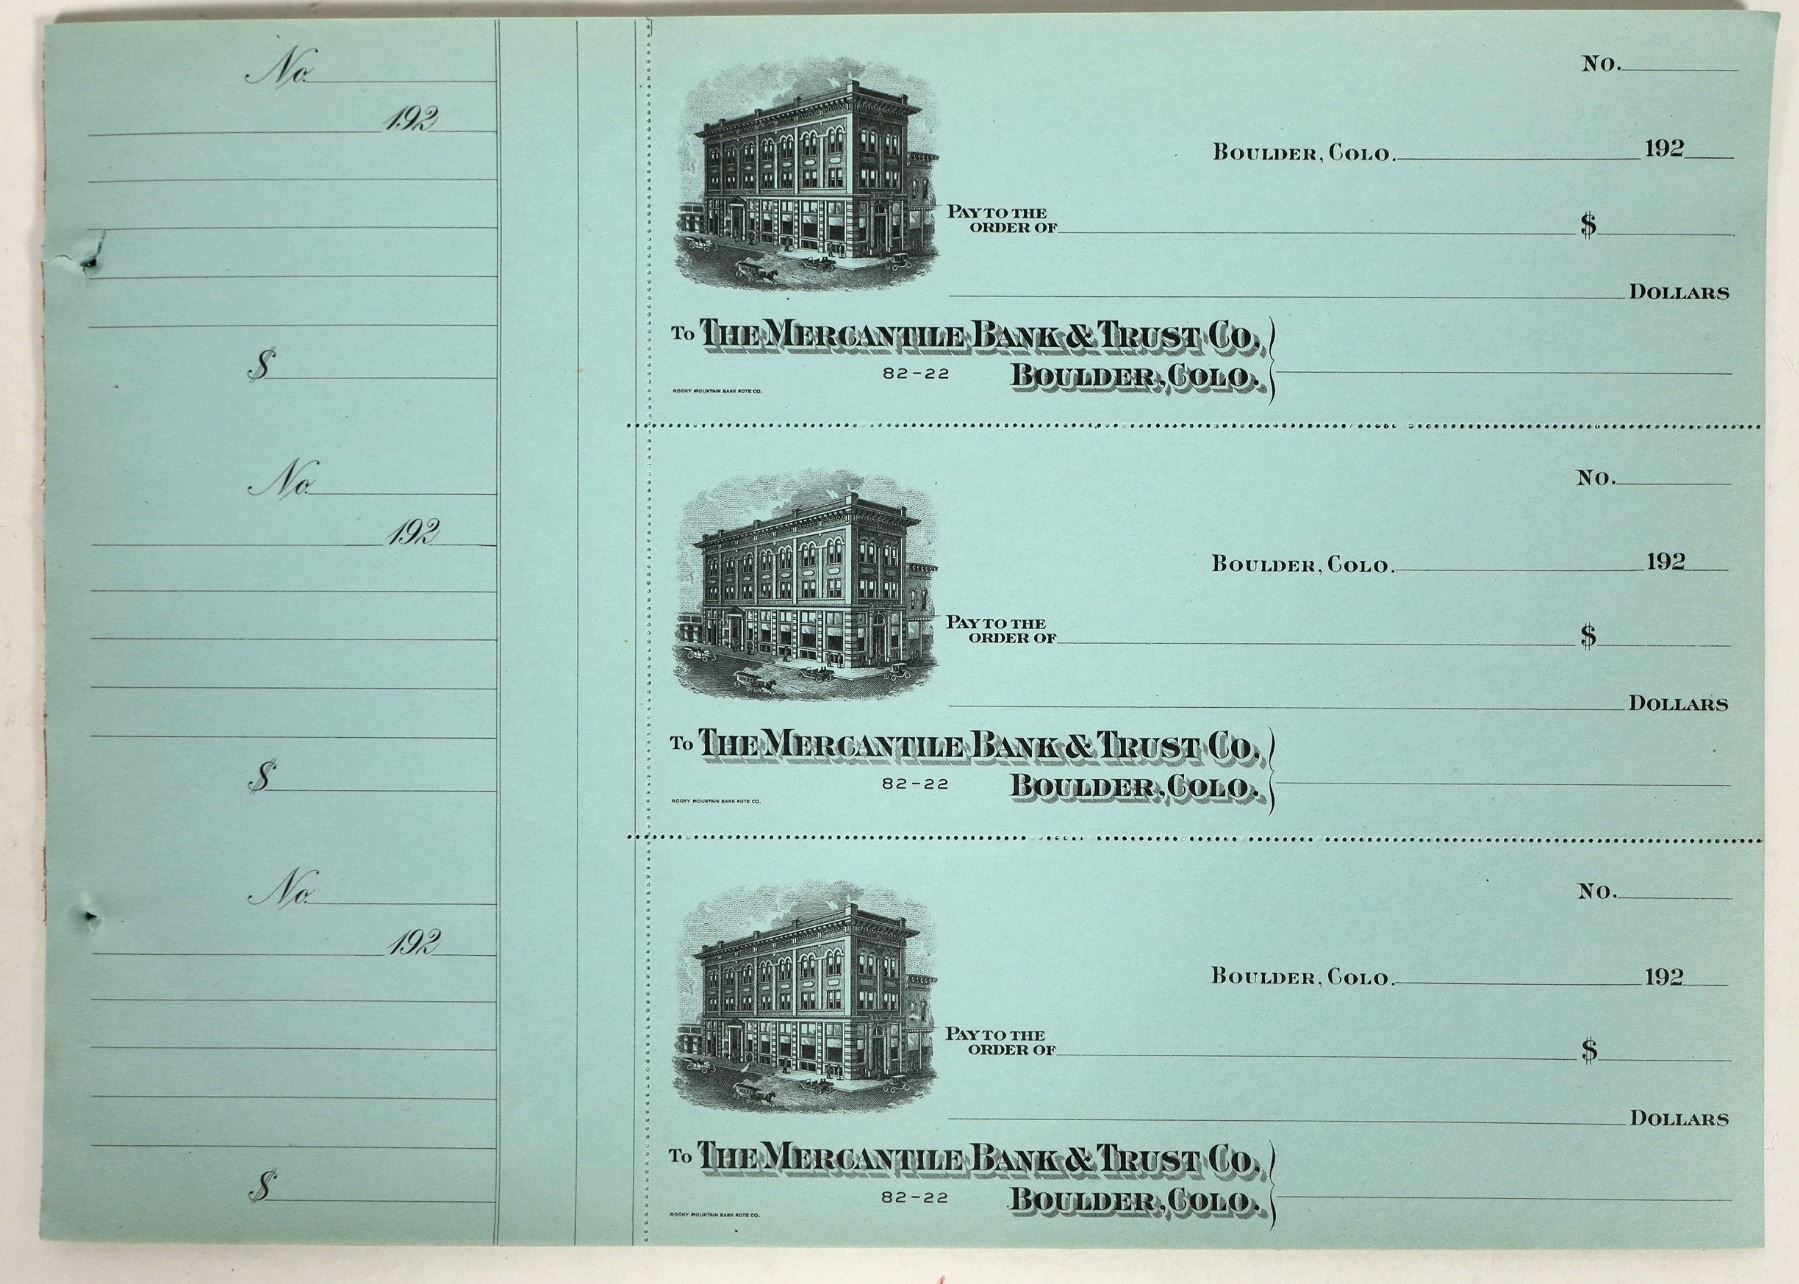 No.
192
$
No.
BOULDER, COLO. 192
PAY TO THE
ORDER OF $
DOLLARS
TO THE MERCANTILE BANK & TRUST CO.
82-22 BOULDER, COLO.
ROCKY MOUNTAIN BANK NOTE CO.
No.
192
$
No.
BOULDER, COLO. 192
PAY TO THE
ORDER OF $
DOLLARS
TO THE MERCANTILE BANK & TRUST CO.
82-22 BOULDER, COLO.
ROCKY MOUNTAIN BANK NOTE CO.
No.
192
$
No.
BOULDER, COLO. 192
PAY TO THE
ORDER OF $
DOLLARS
TO THE MERCANTILE BANK & TRUST CO.
82-22 BOULDER, COLO.
ROCKY MOUNTAIN BANK NOTE CO.